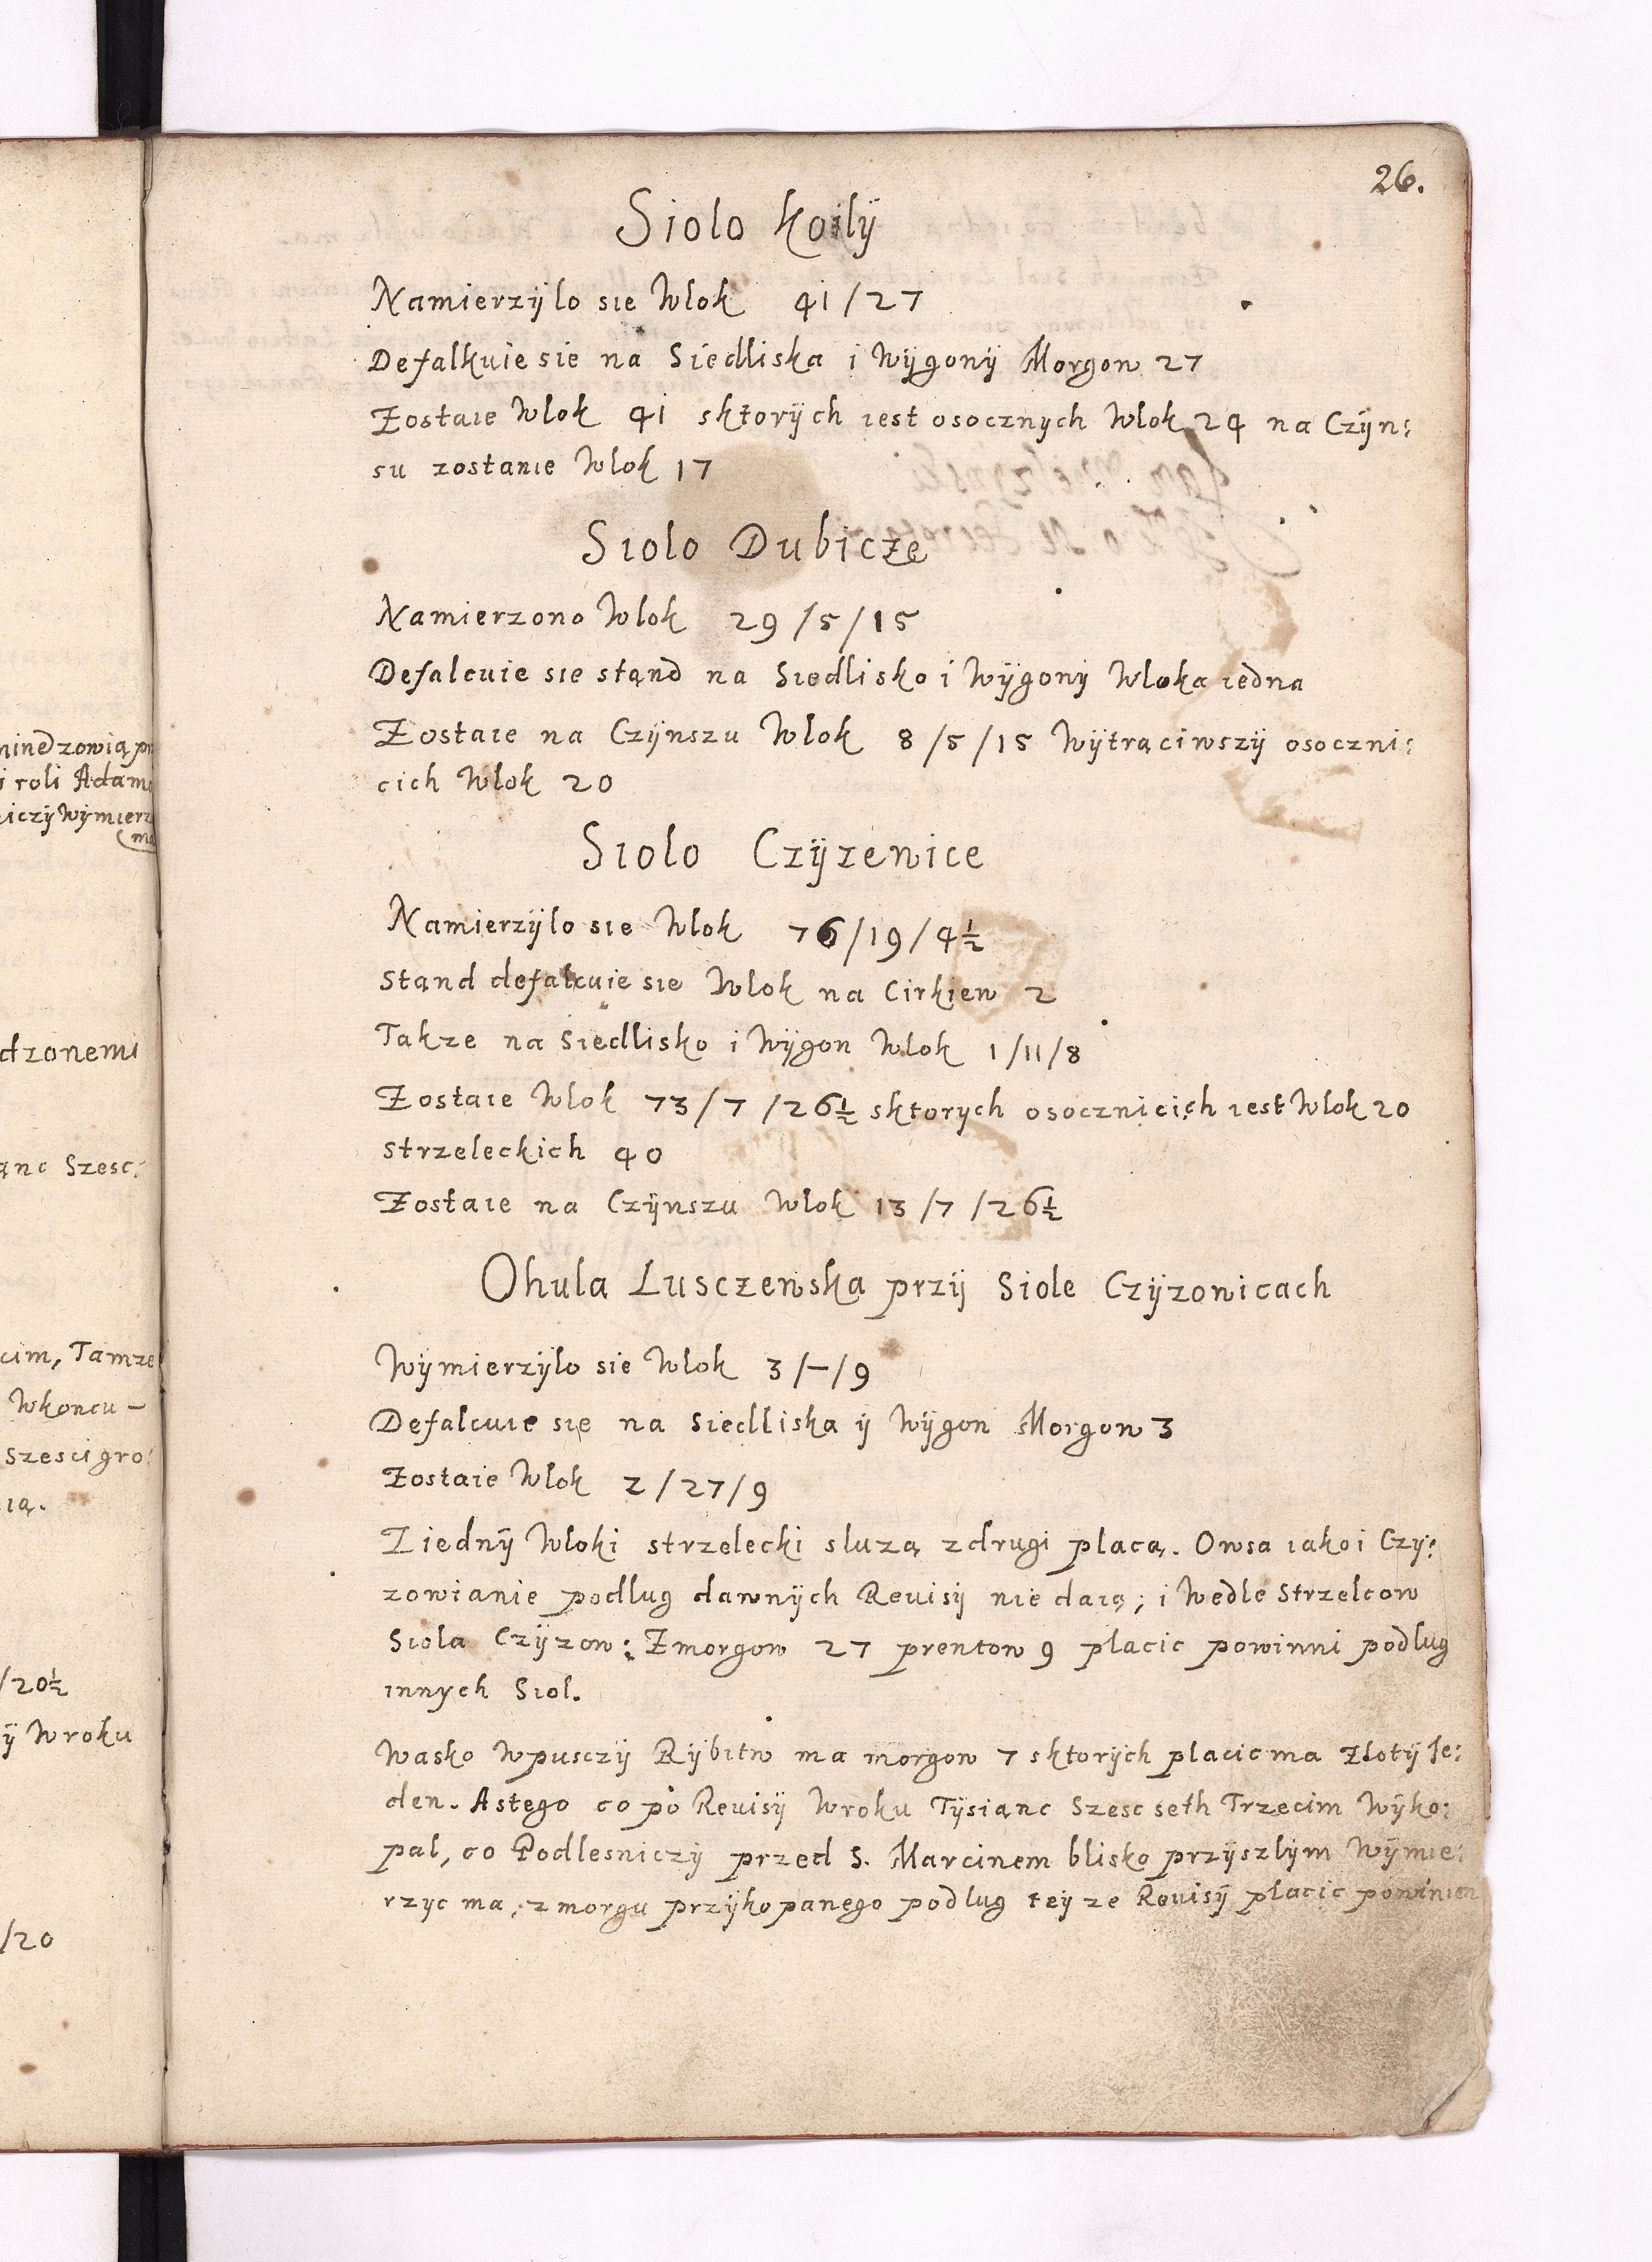 26.
Siolo Koilÿ
Namierzÿlo sie Wlok 41/27
Defalkuie sie na Siedliska i Wÿgonÿ Morgow 27
Zostaie Wlok 41 sktorÿch iest osocznych Wlok 24 na Czÿn:
su zostanie Wlok 17
Siolo Dubicze
Namierzono Wlok 29/5/15
Defalcuie sie stąnd na Siedlisko i Wÿgonÿ Wloka iedna
Zostaie na Czÿnszu Wlok 8/5/15 Wÿtraciwszÿ osoczni:
cich Wlok 20
Siolo Czÿzewice
Namierzÿlo sie Wlok 76/19/4½
Stąnd defalcuie sie Wlok na Cirkiew 2
Takze na Siedlisko i Wÿgon Wlok 1/11/8
Zostaie Wlok 73/7/26½ sktorych osocznicich iest Wlok 20
strzeleckich 40
Zostaie na Czÿnszu Wlok 13/7/26½
Ohula Lusczewska przÿ Siole Czÿzowicach
Wÿmierzÿlo sie Wlok 3/-/9
Defalcuie się na Siedliska ÿ Wÿgon Morgow 3
Zostaie Wlok 2/27/9
Z iednÿ Wloki strzelecki sluzą zdrugi placą. Owsa iako i Czÿ:
zowianie podlug dawnÿch Reuisÿ nie daią; i Wedle Strzelcow
Siola Czÿzow: Zmorgow 27 prentow 9 placic powinni podlug
innych Siol.
Wasko Wpusczÿ Rÿbitw ma morgow 7 sktorÿch placic ma Zlotÿ Je:
den. Astego co po Reuisÿ Wroku Tÿsianc Szesc seth Trzecim Wÿko:
pal, co Podlesniczÿ przed S. Marcinem blisko przÿszlÿm Wÿmie:
rzyc ma, zmorgu przÿkopanego podlug teÿ ze Reuisÿ placic powinien